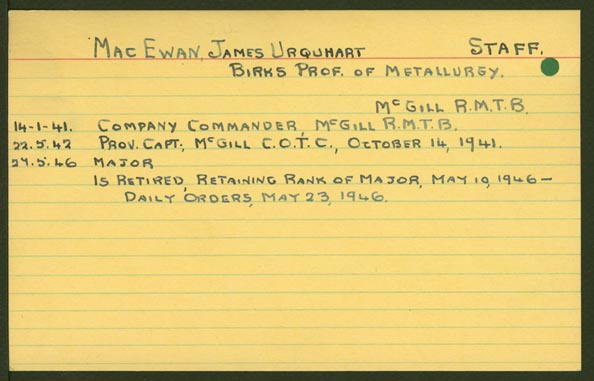 MAC EWAN, JAMES URQUHART STAFF.
BIRKS PROF. OF METALLURGY.
McGILL R.M.T.B.
14-1-41. COMPANY COMMANDER, McGILL R.M.T.B.
22.5.42 PROV. CAPT., McGILL C.O.T.C., OCTOBER 14, 1941.
27.5.46 MAJOR
IS RETIRED, RETAINING RANK OF MAJOR, MAY 10, 1946 —
DAILY ORDERS, MAY 23, 1946.